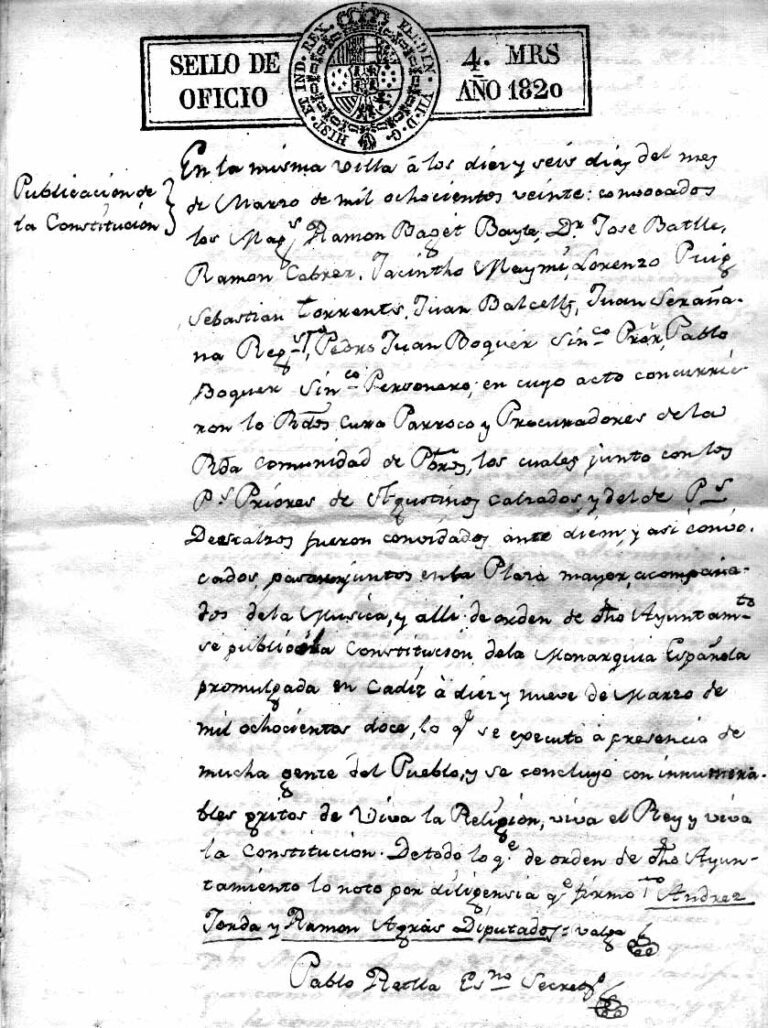 SELLO DE OFICIO
HISP. ET IND. REX FERDIN. VII. D. G.
4. MRS
AÑO 1820
Publicacion de
la Constitucion
En la misma Villa à los diez y seis dias del mes
de Marzo de mil ochocientos veinte: convocados
los Mag.s Ramon Baget Bayle, D.r Jose Batlle,
Ramon Cabrer, Jacintho Maymi, Lorenzo Puig
Sebastian Torrents, Juan Balcells, Juan Seraña-
na Reg.s, Pedro Juan Boquer Sin.co Pror, Pablo
Boquer Sin.co Personero; en cuyo acto concurrie-
ron lo Rdos Cura Parroco y Procuradores de la
Rda Comunidad de Pbros, los cuales junto con los
P.s Priores de Agustinos calzados, y del de P.s
Descalzos fueron convidados ante diem, y asi convo-
cados, juntos en la Plaza mayor, acompaña-
dos de la Musica, y alli de orden de dho Ayuntam.to
se publicó la Constitucion de la Monarquia Española
promulgada en Cadiz à diez y nueve de Marzo de
mil ochocientos doce, lo q.e se executó à presencia de
mucha gente del Pueblo, y se concluyo con innumera-
bles gritos de Viva la Religion, viva el Rey y viva
la Constitucion. De todo lo q.e de orden de dho Ayun-
tamiento lo noto por diligensia q.e firmo Andres
Jorda y Ramon Agràs Diputados = valga
Pablo Es.no Secret.o